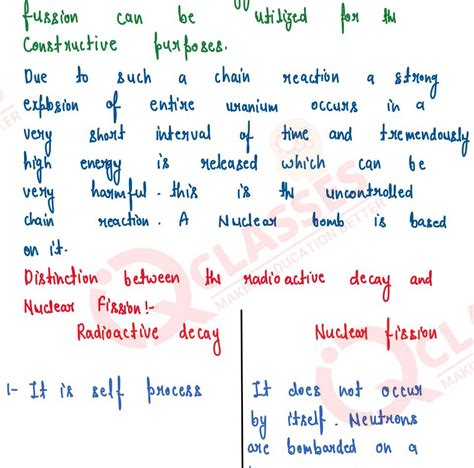 fussion can be utilized for the
Constructive purposes.
Due to such a chain reaction a strong
explosion of entire uranium occurs in a
very short interval of time and tremendously
high energy is released which can be
very harmful. this is the uncontrolled
chain reaction. A Nuclear bomb is based
on it.
Distinction between the radioactive decay and
Nuclear Fission:-
Radioactive decay
Nuclear fission
1- It is self process
It does not occur
by itself. Neutrons
are bombarded on a
CLASSES
MAKING EDUCATION BETTER